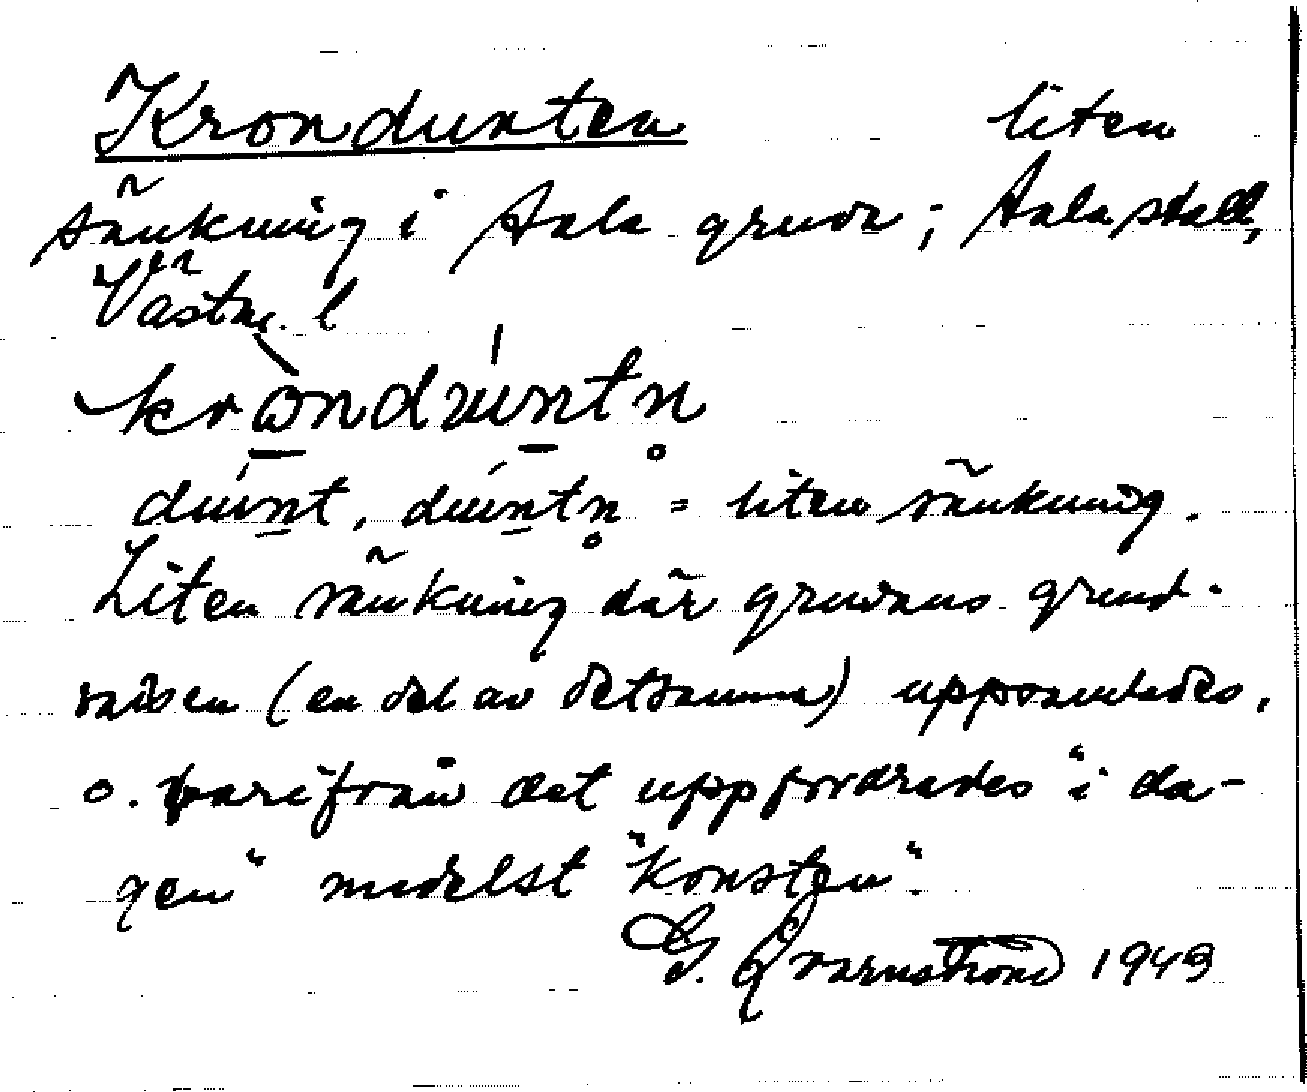 Krondunten liten
sänkning i Sala gruva; Sala stad,
Västm. l
kròndúntn̥
dúnt, dúntn̥ = liten sänkning.
Liten sänkning där gruvans grund-
vatten (en del av detsamma) uppsamlades,
o. varifrån det uppfordrades "i da-
gen" medelst "konsten".
G. Qvarnström 1943